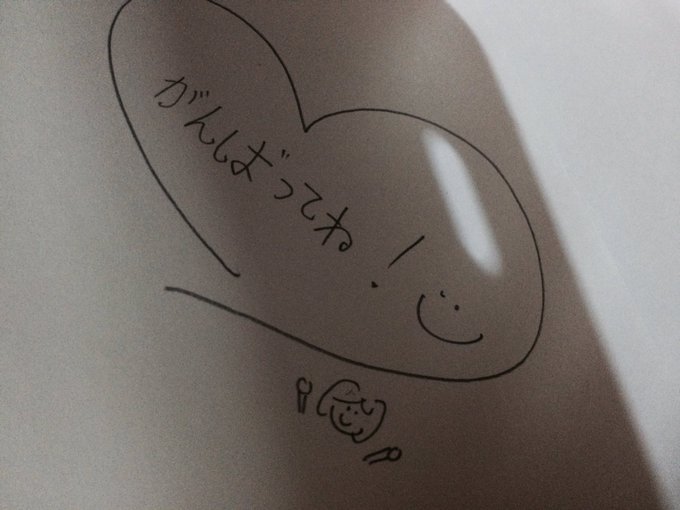 がんばってね!